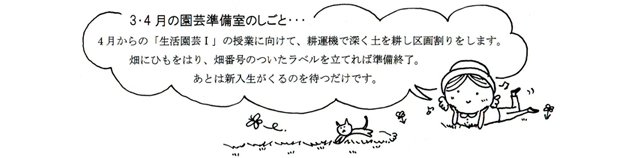 3・4月の園芸準備室のしごと・・・
4月からの「生活園芸Ⅰ」の授業に向けて、耕運機で深く土を耕し区画割りをします。
畑にひもをはり、畑番号のついたラベルを立てれば準備終了。
あとは新入生がくるのを待つだけです。